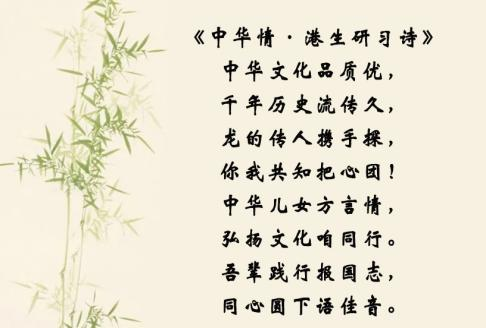 《中华情·港生研习诗》
中华文化品质优，
千年历史流传久，
龙的传人携手探，
你我共知把心团！
中华儿女方言情，
弘扬文化咱同行。
吾辈践行报国志，
同心圆下语佳音。